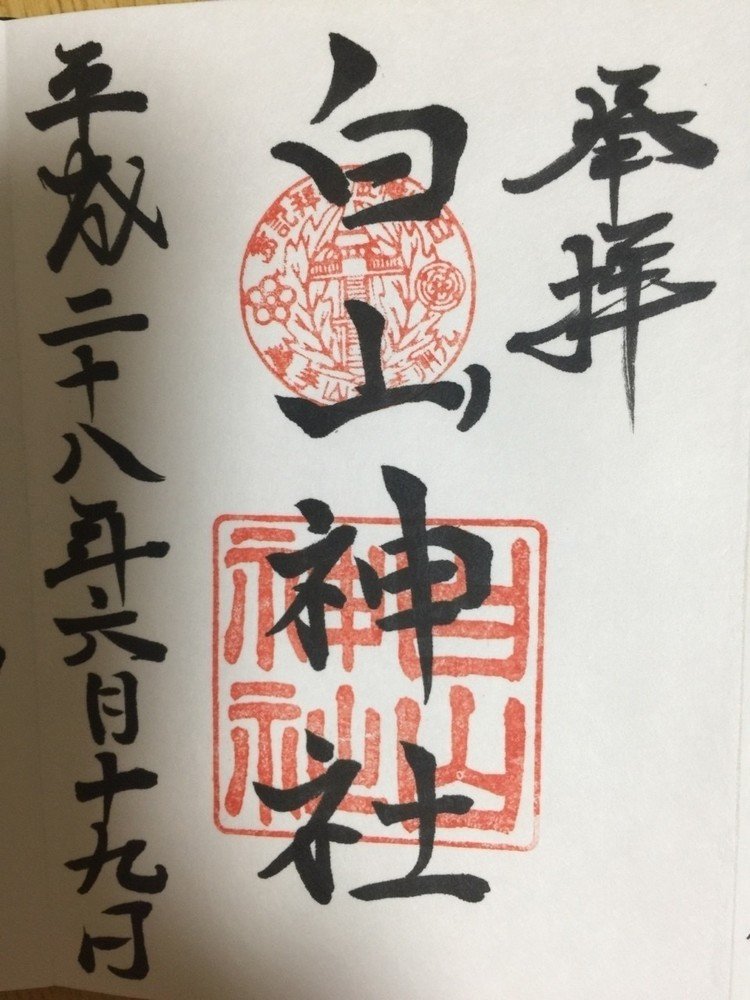 奉拝
白山神社
平成二十八年六月十九日
白山神社